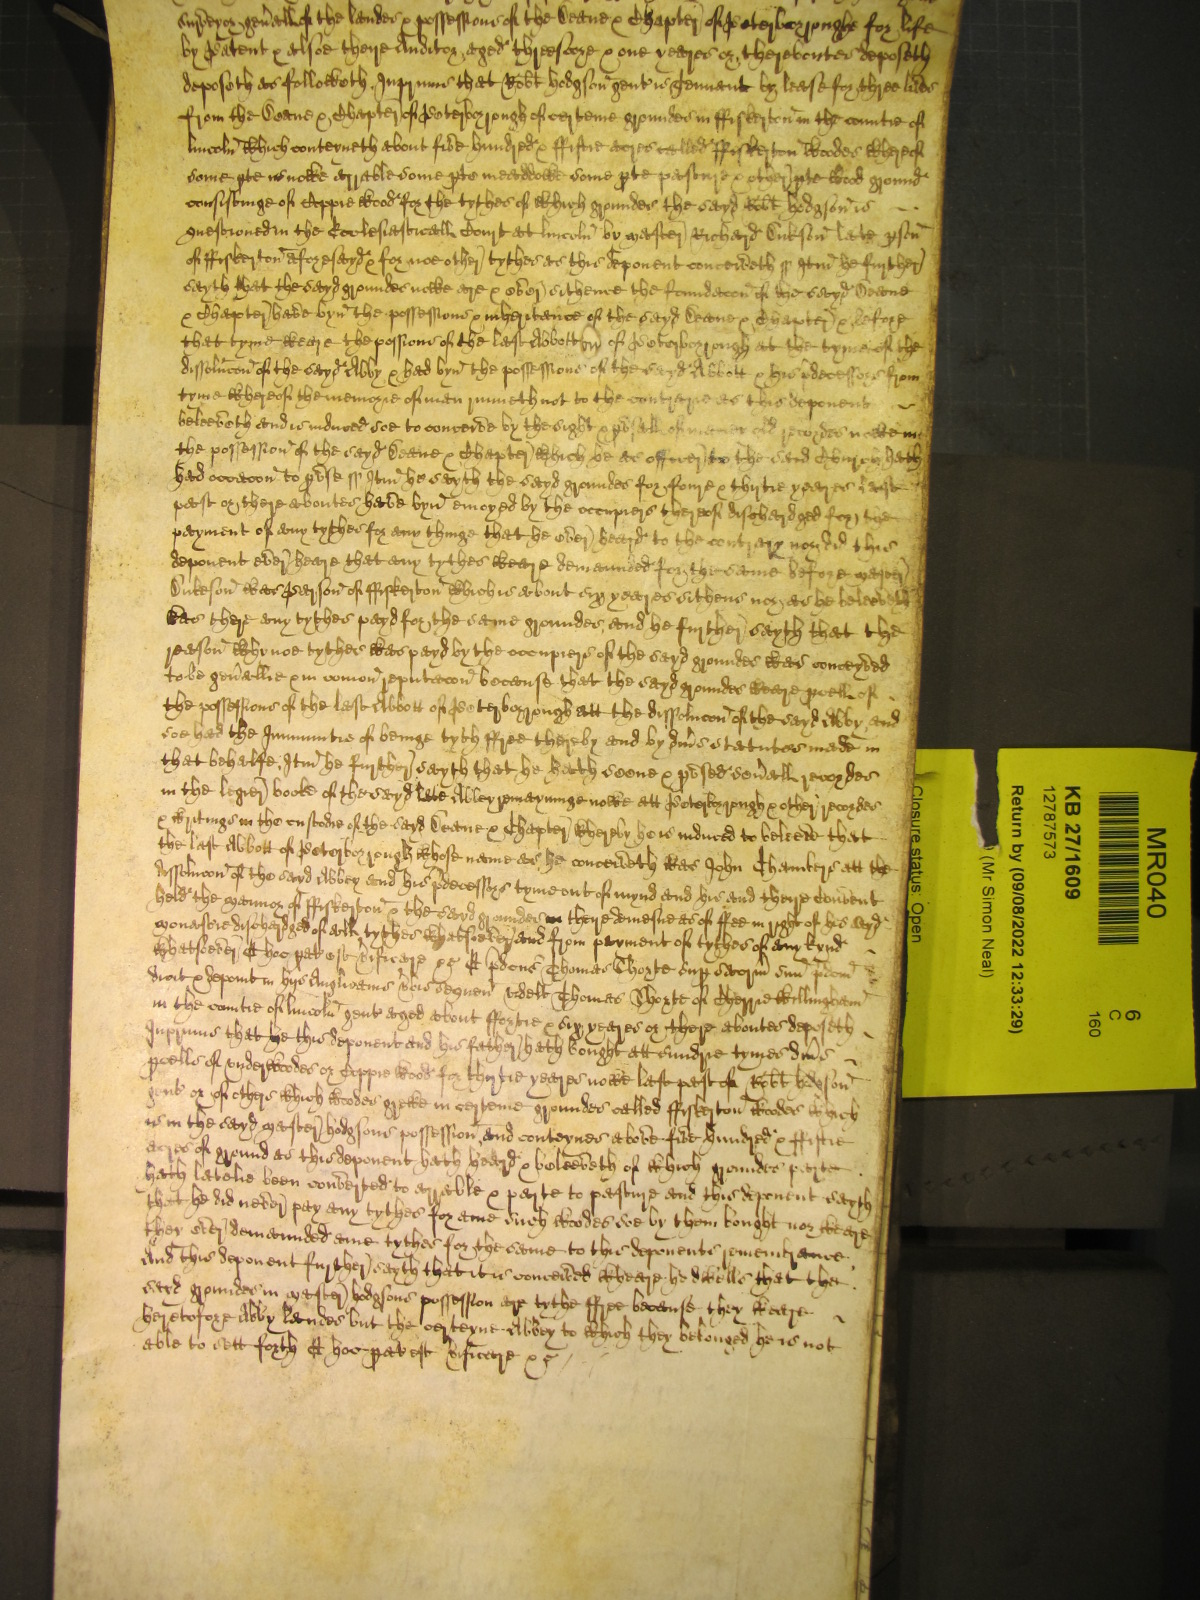 Surveyor genrall of the landes & possessions of the Deane & Chapter of Peterborroughe for life
by Patent & alsoe there Auditor aged threescore & one yeares or thereboutes deposeth
deposeth as followeth. Inprimis that Robt Hodgson gent is Tennant by lease for three lives
from the Deane & Chapter of Peterborrough of certeine groundes in ffiskerton in the countie of
Lincoln which conteyneth about five hundred & ffiftie acres called ffiskerton Woodes whereof
some pte is nowe arrable some pte meaddowe some pte pasture & other pte wood ground
consistinge of Coppie wood for the tythes of which groundes the sayd Robt Hodgson is
questioned in the Ecclesiasticall Court at Lincoln by Master Richard Cukson late pson
of ffiskerton aforesayd & for noe other tythes as this deponent conceiveth Itm he further
sayth that the sayd groundes nowe are & ever sithence the foundacon of the sayd Deane
& Chapter have byn the possessions & inheritance of the sayd Deane & Chapter & before
that tyme weare the possessions of the last Abbott of Peterborrough at the tyme of the
dissolucon of the sayd Abby & had byn the possessions of the sayd Abbott & his pdecessors from
tyme whereof the memorie of man runneth not to the contrarie as this deponent
beleeveth and is induced soe to conceive by the sight & pusall of manie old recordes nowe in
the possession of the sayd Deane & Chapter which he as officer to the said Church hath
had occacon to pvse Itm he sayth the sayd groundes for foure & thirtie yeares last
past or there aboutes have byn enioyed by the occupiers thereof dischardged from the
payment of any tythes for any thinge that he ever heard to the contrary nor did this
deponent ever heare that any tythes weare demaunded for the same before Master
Cukson was Parson of ffiskerton which is about yeares sithens nor as he beleeveth
was there any tythes payd for the same groundes, and he further sayth that the
reason why noe tythes was payd by the occupiers of the sayd groundes was conceyved
to be genrallie & in comon reputacon because that the sayd groundes weare pcell of
the possessions of the last Abbott of Peterborrough att the dissolucon of the sayd Abby and
soe had the Immunitie of beinge tyth ffree thereby and by divrs statutes made in
that behalfe. Itm he further sayth that he hath seene & pvsed sevrall recordes
in the legier booke of the sayd late Abbey remayninge nowe att Peterborrough & other recordes
& writings in the custodie of the sayd Deane & Chapter whereby he is induced to beleeve that
the last Abbott of Peterborrough whose name as he conceiveth was John Chambers att the
dyssolucon of the sayd Abbey and his pdecessors tyme out of mynd and his and there Covent
held the mannor of ffiskerton & the sayd groundes in there demesne as of ffee in right of his sayd
monastrie dischardged of all tythes whatsoever and from payment of tythes of any kynd
whatsoever Et hoc pat est vificare &c Et pdcus Thomas Thorte sup sacrm suu pdcm
dicit & deponit in hijs Anglicanis vbis sequen vidlt Thomas Thorte of Cherrie Willingham
in the countie of Lincoln gent aged about ffortie & six yeares or there aboutes deposeth
Inprimis that he this deponent and his father hath bought att sundrie tymes divrs
pcells of underwoodes or Coppie wood for thirtie yeares nowe last past of Robt Hodgson
gent or of others which woodes grewe in certeine groundes called ffiskerton Woodes which
is in the sayd Master Hodgsons possession, and conteynes above five hundred & ffiftie
acres of ground as this deponent hath heard & beleeveth of which groundes parte
hath latelie been converted to arrable & parte to pasture and this deponent sayth
that he did never pay any tythes for anie such woodes soe by them bought nor weare
they ever demaunded anie tythes for the same to this deponents remembrance
And this deponent further sayth that it is conceived wheare he dwells that the
sayd groundes in Master Hodgsons possession are tythe ffree because they weare
heretofore Abby landes but the certeyne Abbey to which they belonged he is not
able to sett forth Et hoc pat est vificare &c
MR040
KB 27/1609
12787573
Return by (09/08/2022 12:33:29)
(Mr Simon Neal)
Closure status: Open
6
C
160